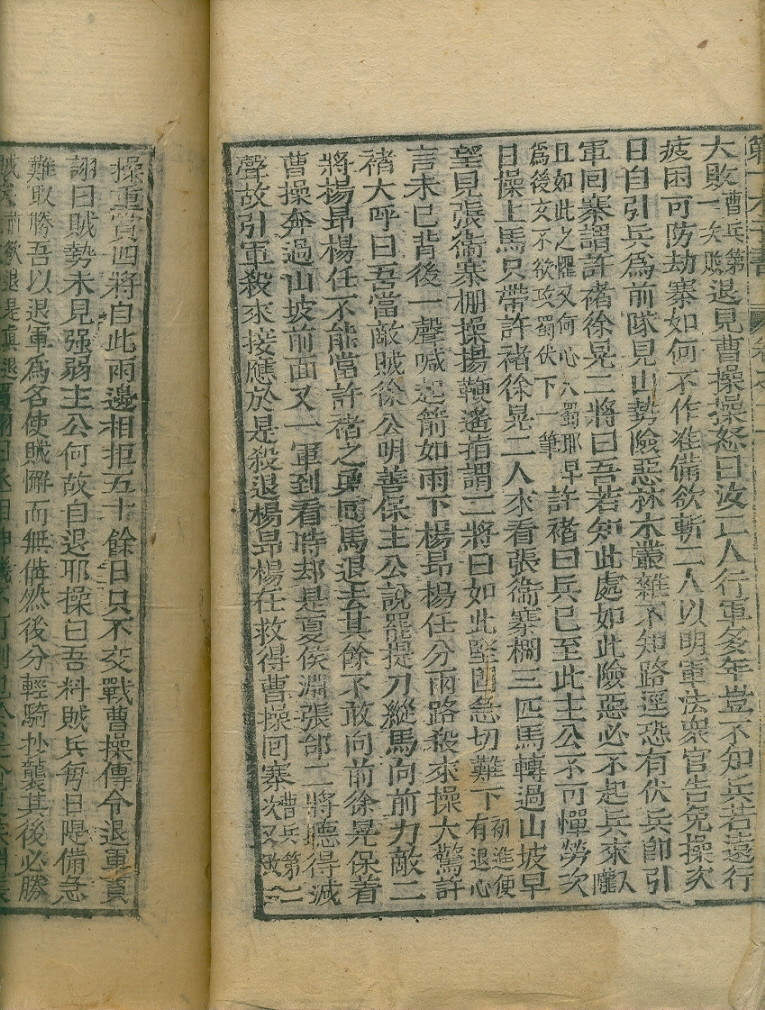 大敗曹兵第一次敗退見曹操操怒曰汝二人行軍多年豈不知兵若遠行
疲困可防劫寨如何不作准備欲斬二人以明軍法衆官告免操次
日自引兵爲前隊見山勢險惡林木叢雜不知路逕恐有伏兵卽引
軍回寨謂許褚徐晃二將曰吾若知此處如此險惡必不起兵來
且如此之懼又何心入蜀耶早爲後文不欲攻蜀伏下一筆許褚曰兵已至此主公不可憚勞次
日操上馬只帶許褚徐晃二人來看張衞寨柵三匹馬轉過山坡早
望見張衞寨棚操揚鞭遙指謂二將曰如此堅固急切難下初進便有退心
言未已背後一聲喊起箭如雨下楊昂楊任分兩路殺來操大驚許
褚大呼曰吾當敵賊徐公明善保主公說罷提刀縱馬向前力敵二
將楊昂楊任不能當許褚之勇回馬退去其餘不敢向前徐晃保着
曹操奔過山坡前面又一軍到看時却是夏侯淵張郃二將聽得滅
聲故引軍殺來接應於是殺退楊昂楊任救得曹操回寨曹兵第二次又敗
操重賞四將自此兩邊相拒五十餘日只不交戰曹操傳令退軍賈
詡曰賊勢未見强弱主公何故自退耶操曰吾料賊兵每日隄備急
難取勝吾以退軍爲名使賊懈而無備然後分輕騎抄襲其後必勝